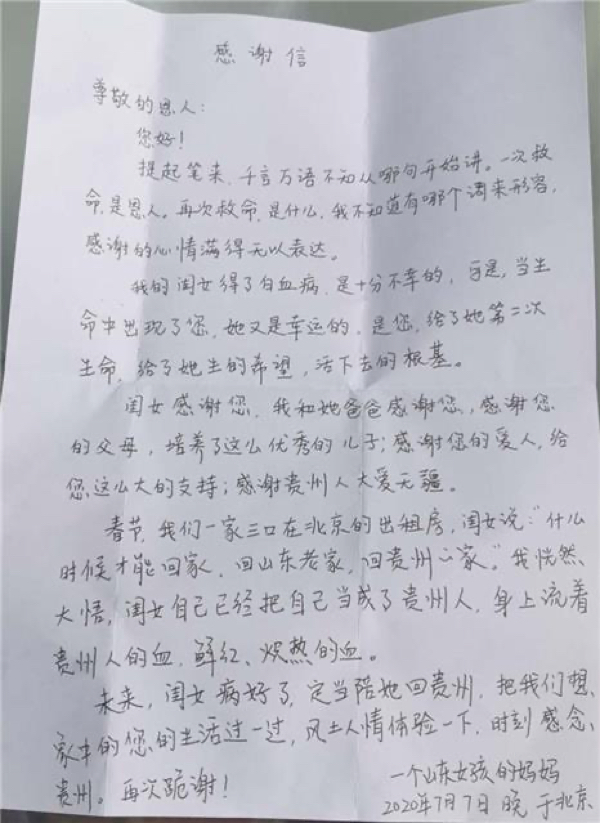 感谢信
尊敬的恩人：
您好！
提起笔来，千言万语不知从哪句开始讲。一次救
命，是恩人。再次救命，是什么，我不知道有哪个词来形容，
感谢的心情满得无以表达。
我的闺女得了白血病，是十分不幸的，于是，当生
命中出现了您，她又是幸运的，是您，给了她第二次
生命，给了她生的希望，活下去的根基。
闺女感谢您，我和她爸爸感谢您，感谢您
的父母，培养了这么优秀的儿子；感谢您的爱人，给
您这么大的支持；感谢贵州人大爱无疆。
春节，我们一家三口在北京的出租房，闺女说：“什么
时候才能回家，回山东老家，回贵州家。”我恍然
大悟，闺女自己已经把自己当成了贵州人，身上流着
贵州人的血，鲜红、炽热的血。
未来，闺女病好了，定当陪她回贵州，把我们想
家中的您的生活过一过，风土人情体验一下，时刻感念
贵州。再次跪谢！
一个山东女孩的妈妈
2020年7月7日晚 于北京